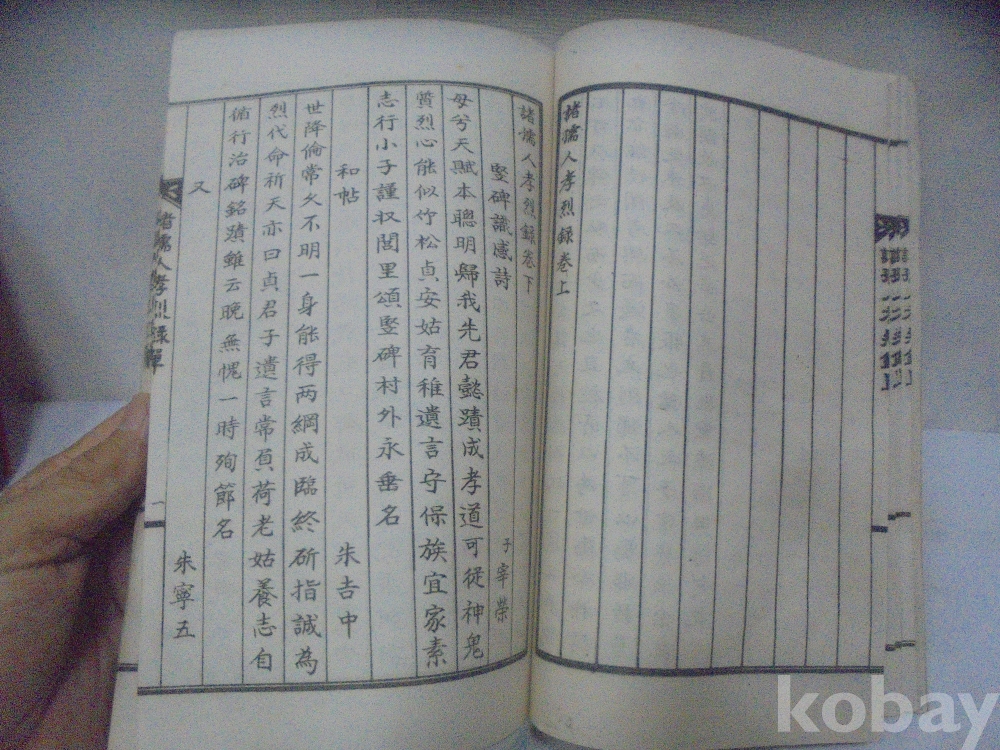 諸孺人孝烈錄卷上
諸孺人孝烈錄卷下
竪碑識感詩
子宰榮
母兮天賦本聰明歸我先君懿蹟成孝道可従神鬼
質烈心能似竹松貞安姑育稚遺言守保族宜家素
志行小子謹収閭里頌竪碑村外永垂名
和帖
朱吉中
世降倫常久不明一身能得两綱成臨終斫指誠為
烈代命祈天亦曰貞君子遺言常負荷老姑養志自
循行治碑銘蹟雖云晚無愧一時殉節名
又
朱寧五
諸孺人孝烈錄單
一
kobay